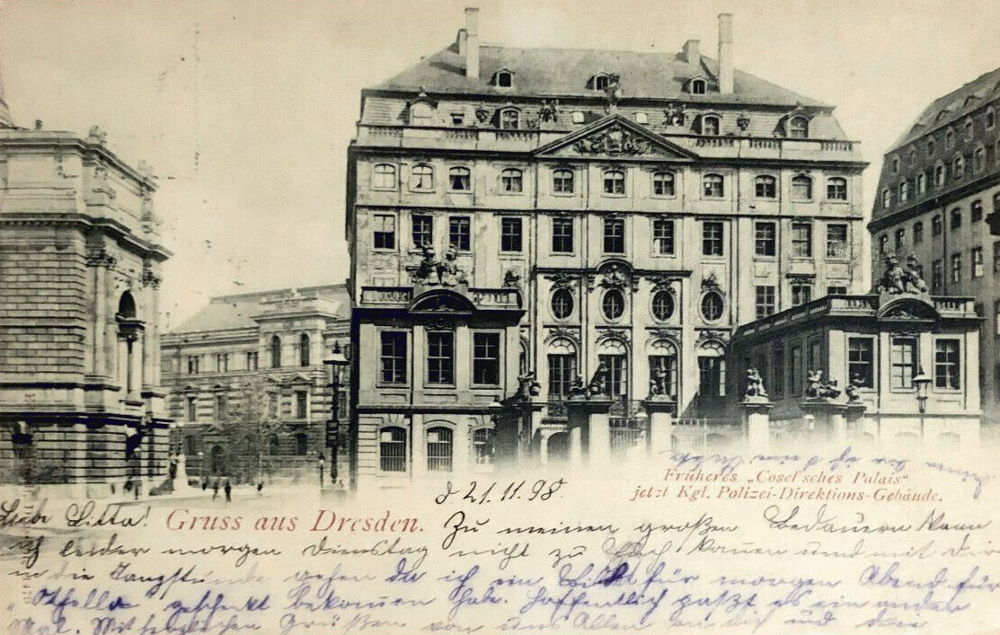 Früheres „Cosel'sches Palais"
jetzt Kgl. Polizei-Direktions-Gebäude.
d 21.11.98.
Gruss aus Dresden.
Liebe Litta! Zu meinen großen Bedauern kann
ich leider morgen Dienstag nicht zu Euch kommen und mit dir
in die Tanzstunde gehen da ich ein Billet für morgen Abend für
„Othello" geschenkt bekommen habe. Hoffentlich paßt es ein ander
Mal. Mit herzlichen Grüßen von uns Allen an dich und